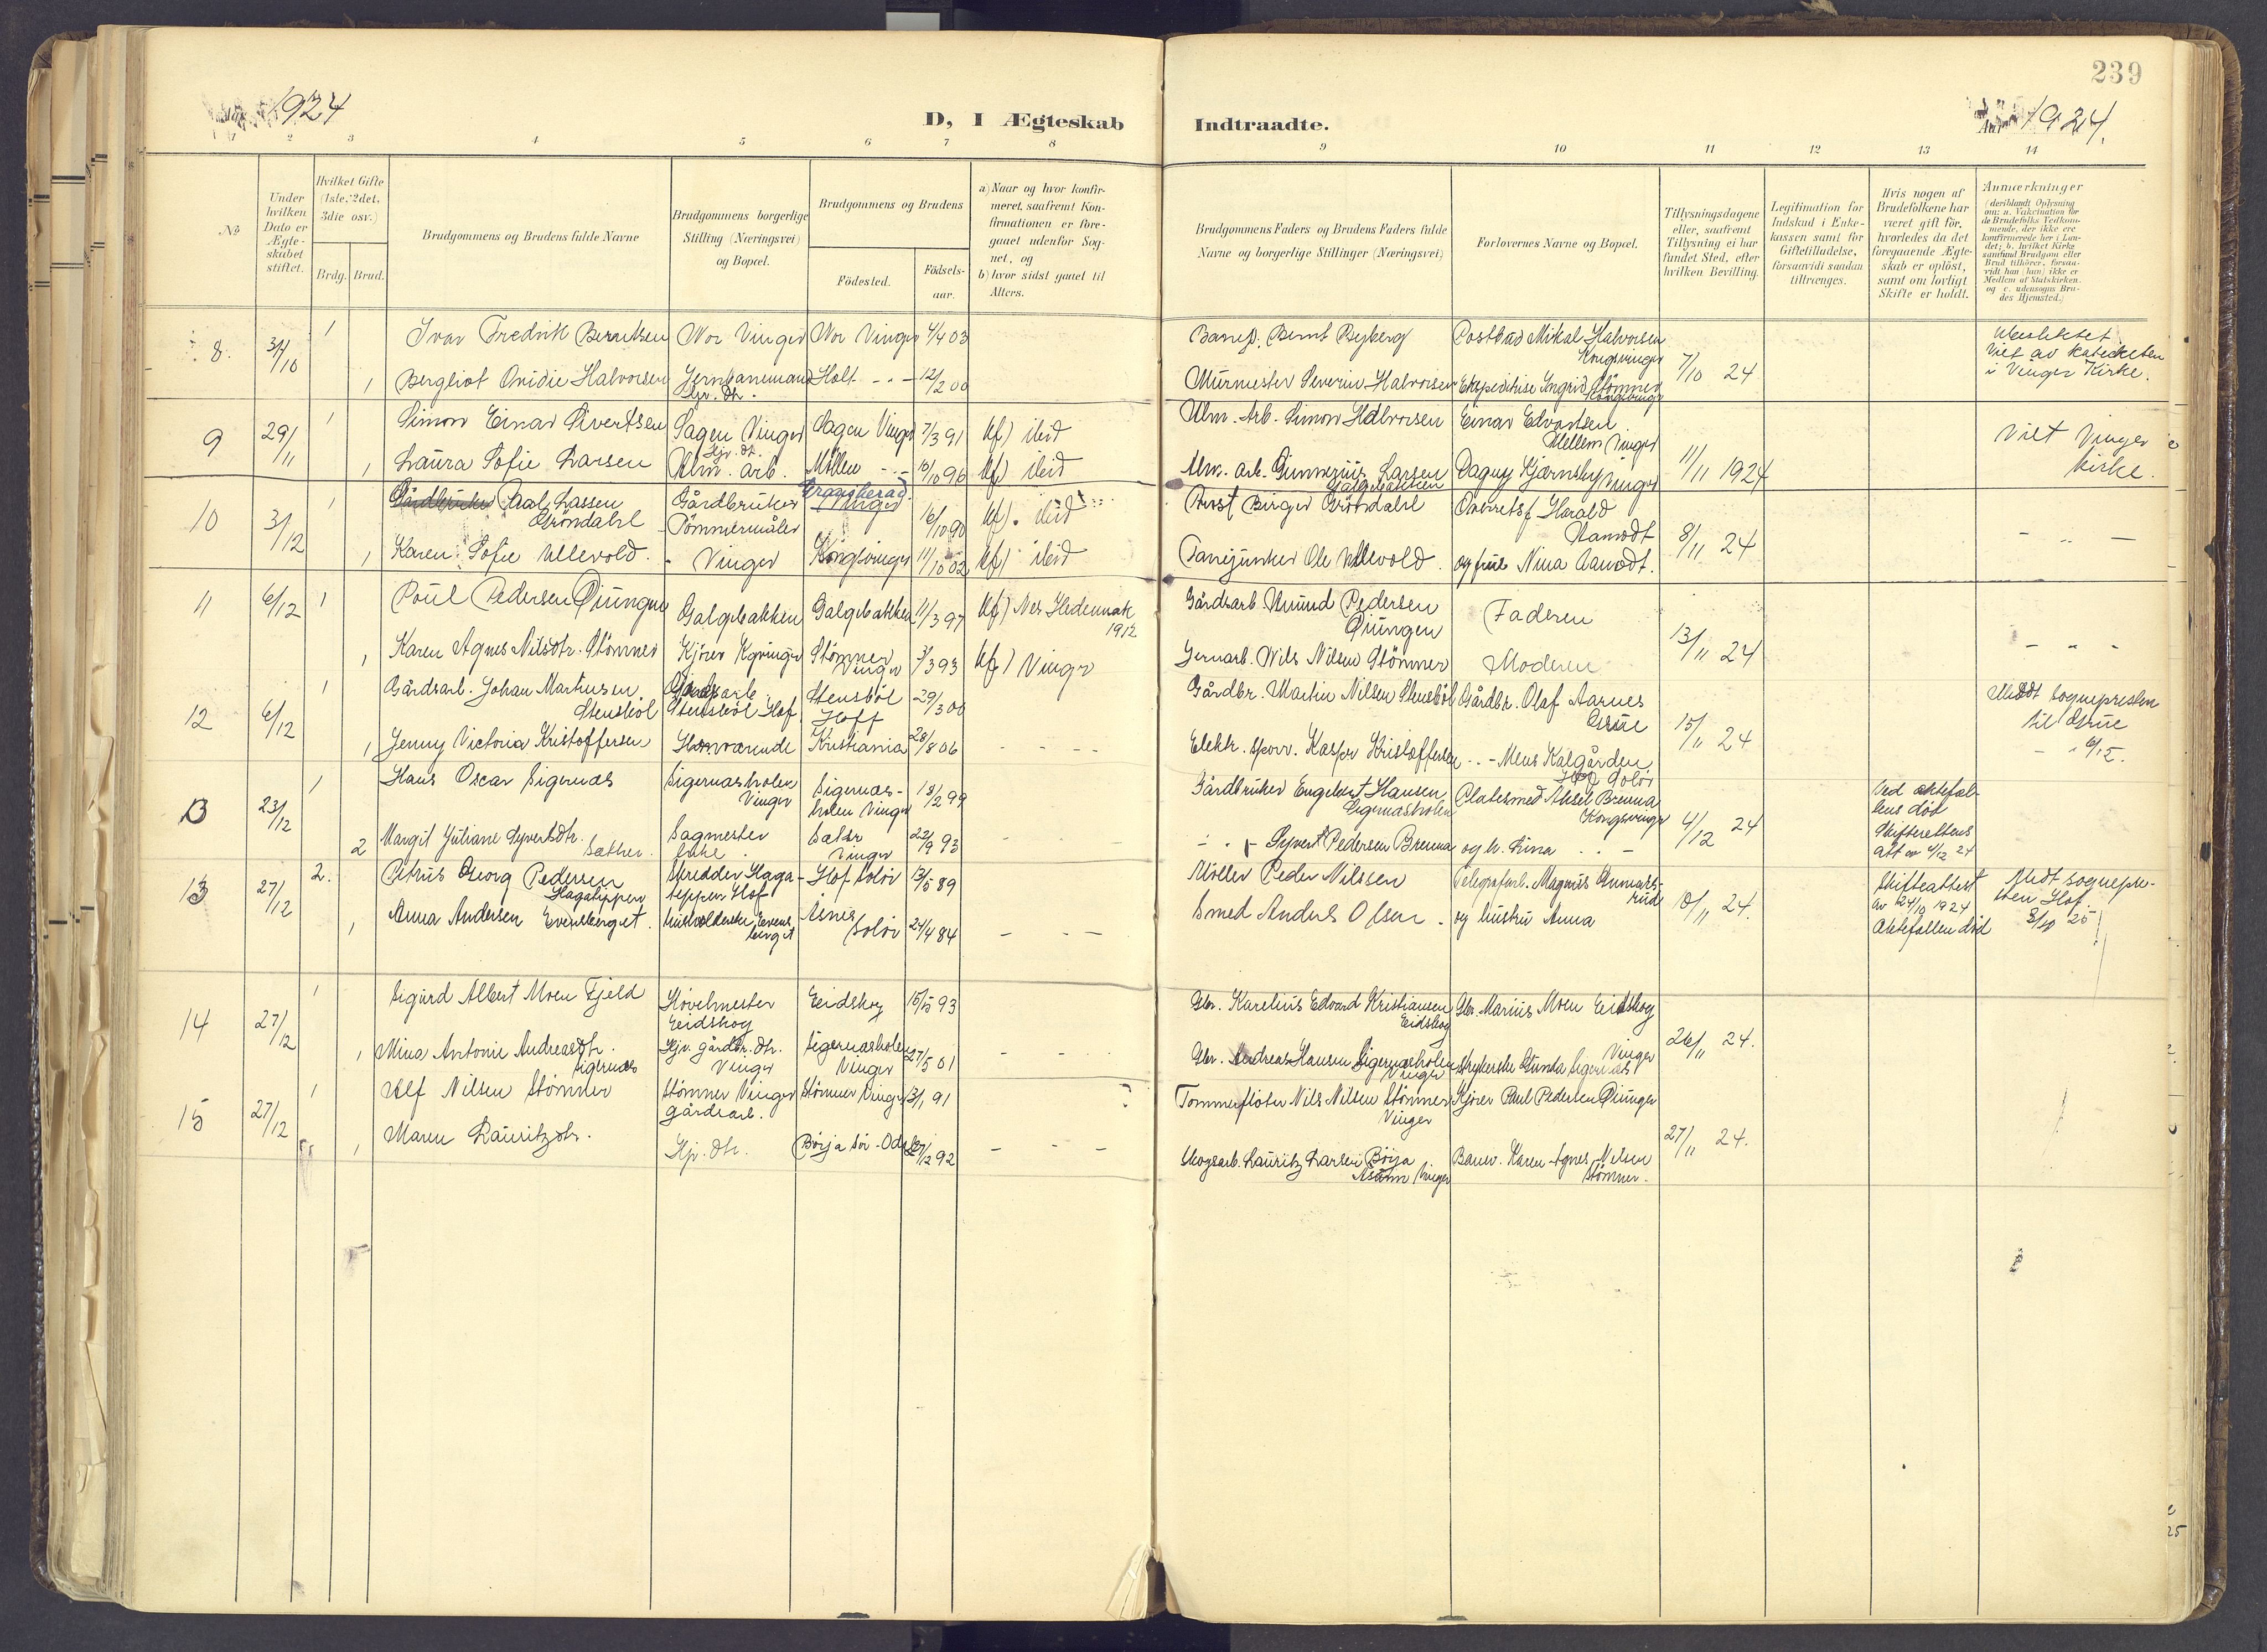 239
1924
D, I Ægteskab Indtraadte.
Aar 1924.
1 2 3 4 5 6 7 8 9 10 11 12 13 14
No
Under hvilken Dato er Ægteskabet stiftet.
Hvilket Gifte (1ste, 2det, 3die osv.)
Brdg. Brud.
Brudgommens og Brudens fulde Navne
Brudgommens borgerlige Stilling (Næringsvei) og Bopæl.
Brudgommens og Brudens
Fødested.
Fødselsaar.
a) Naar og hvor konfirmeret, saafremt Konfirmationen er foregaaet udenfor Sognet, og
b) hvor sidst gaaet til Alters.
Brudgommens Faders og Brudens Faders fulde Navne og borgerlige Stillinger (Næringsvei)
Forlovernes Navne og Bopæl.
Tillysningsdagene eller, saafremt Tillysning ei har fundet Sted, efter hvilken Bevilling.
Legitimation for Indskud i Enkekassen samt for Giftetilladelse, forsaavidt saadan tiltrænges.
Hvis nogen af Brudefolkene har været gift før, hvorledes da det foregaaende Ægteskab er opløst, samt om lovligt Skifte er holdt.
Anmærkninger (deriblandt Oplysning om: a. Vakcination for de Brudefolks Vedkommende, der ikke ere konfirmerede her i Landet; b. hvilket Kirkesamfund Brudgom eller Brud tilhører, forsaavidt han (hun) ikke er Medlem af Statskirken. og c. udensogns Brudes Hjemsted.)
8. 31/10 1 Ivar Fredrik Berntsen Nor Vinger Nor Vinger 4/4 03 Bernt Byberg Postbud Mikal Halvorsen Kongsvinger 7/10 24
Viet av kateketen i Vinger Kirke.
1 Bergliot Ovidie Halvorsen Jernbanemand Hjv. dtr. Holt - " - 12/2 00 Murmester Severin Halvorsen Ekspeditrise Ingrid Stömner Kongsvinger
9 29/11 1 Simon Einar Sivertsen Sagen Vinger Sagen Vinger 7/3 91 Kf) ibid Alm. Arb. Simon Halvorsen Einar Edvartsen Mellem Vinger 11/11 1924 Viet Vinger kirke.
1 Laura Sofie Larsen Hjv. dt. Alm. arb. Möllen - " - 10/10 96 Kf) ibid Alm. arb. Gunnerius Larsen Galgebakken Dagny Kjærnsby Vinger
10 3/12 1 Paal Lassen Gröndahl Gårdbruker Tömmermåler Brandval Vinger 16/10 90 Kf). ibid Birger Gröndahl Harald Aamodt 8/11 24 - " -
1 Karen Sofie Ullevold. - Vinger Kongsvinger 11/10 02 Kf) ibid Fanejunker Ole Ullevold. og frue Nina Aamodt.
11 6/12 1 Poul Pedersen Øiungen Galgebakken Galgebakken 11/3 97 Kf) Nes Hedemark 1912 Gårdsarb. Amund Pedersen Øiungen Faderen 13/11 24 - " -
1 Karen Agnes Nilsdtr. Stömner Kjörer Kgvinger Stömner Vinger 3/3 93 Kf) Vinger Jernarb. Nils Nilsen Stömner Moderen
12 6/12 1 Gårdsarb. Johan Martinsen Stensböl Stensböl Hof. Stensböl Hoff 29/3 00 Gårdbr. Martin Nilsen Stensböl Gårdbr. Olaf Aarnes Grue 15/11 24 Meddt sognepresten til Grue
1 Jenny Victoria Kristoffersen Hjemværende Kristiania 28/8 06 - - - Elektr. sporv. Kaspr Kristoffersen - " - Mens Kalgården Hof Solör
13 23/12 1 Hans Oscar Sigernæs Sigernæsholen Vinger Sigernæsholen Vinger 18/2 99 Gårdbruker Engebert Hansen Sigernæsholen Platesmed Aksel Brenna Kongsvinger 4/12 24 ved ektefællens död Skifterettens att av 4/12 24
2 Margit Juliane Syvertsdtr. Sæther. Sagmester Enke Sæter Vinger 22/9 93 - " - Syvert Pedersen Brenna og h. Lina - " -
13 27/12 2. Petrus Georg Pedersen Hagatippen Skredder Hagatippen Hof Hof Solör 13/5 89 Möller Peder Nilssen Telegrafarb. Magnus Gunnarsrud 18/11 24. Skifteattest av 24/10 1924 Ektefællen död Medt sognepresten Hof. 8/10 25
1 Anna Andersen Evensberget. Husholderske Evensberget Åsnes Solör 24/4 84 - - - Smed Anders Olsen - og hustru Anna
14 27/12 1 Sigurd Albert Moen Fjeld Hövelmester Eidskog Eidskog 15/5 93 Gbr. Karelius Edvard Kristiansen Eidskog Gbr. Marius Moen Eidskog 26/11 24.
1 Mina Antonie Andreasdtr. Sigernæs Hjv. gårdbr. dtr. Vinger Sigernæsholen Vinger 27/5 01 - - - Gbr. Andreas Hansen Sigernæsholen Vinger Strykerske Gunda Sigernæs Vinger
15 27/12 1 Alf Nilsen Stömner Stömner Vinger gårdsarb. Stömner Vinger 3/1 91 Tömmerflöter Nils Nilsen Stömner Vinger Kjörer Paul Pedersen Øiungen 27/11 24.
1 Maren Lauritzdtr. Hjv. dtr. Börja Sör-Odal 27/12 92 - - - Skogsarb. Lauritz Larsen Börja Vinger Barnev. Karen Agnes Nilsen Stömner.